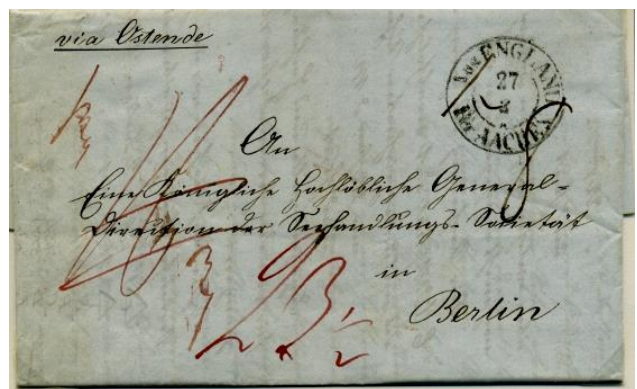 via Ostende
Aus ENGLAND
27
3
Per AACHEN
An
Eine Königliche Hochlöbliche General-
Direction der Seehandlungs-Societät
in
Berlin
23 1/2